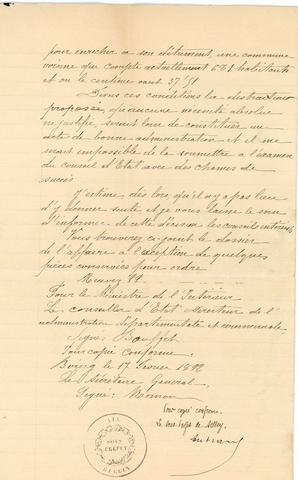 pour enrichir à son détriment, une commune
voisine qui compte actuellement 681 habitants
et où le centime vaut 37f51
Dans ces conditions la distraction
proposée, qu'aucune nécessité absolue
ne justifie, serait loin de constituer un
acte de bonne administration et il me
serait impossible de la soumettre à l'examen
du Conseil d'Etat avec des chances de
succès
J'estime dès lors qu'il n'y a pas lieu
d'y donner suite et je vous laisse le soin
d'informer de cette décision les conseils
Vous trouverez ci-joint le dossier
de l'affaire à l'exception de quelques
pièces conservées pour ordre
Pour le Ministre de l'Intérieur
Le conseiller d'Etat Directeur de l'
administration départementale et communale
Signé:
Pour copie conforme
17 Février 1892
Le Secrétaire Général
Signé:
Pour copie conforme
Le Sous-Préfet
SOUS
PREFET